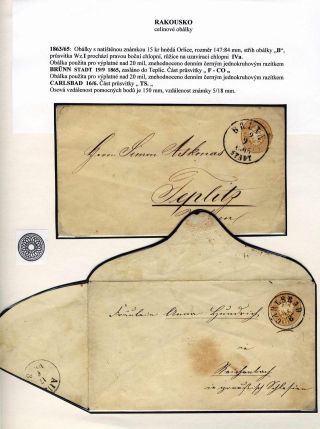 RAKOUSKO
celinové obálky
1863/65: Obálky s natištěnou známkou 15 kr hnědá Orlice, rozměr 147:84 mm, střih obálky „B“,
průsvitka Wz.I prochází pravou boční chlopní, růžice na uzavírací chlopni IVa.
Obálka použita pro výplatné nad 20 mil, znehodnoceno denním černým jednokruhovým razítkem
BRÜNN STADT 19/9 1865, zasláno do Teplic. Část průsvitky „ F - CO „
Obálka použita pro výplatné nad 20 mil, znehodnoceno denním černým jednokruhovým razítkem
CARLSBAD 16/6. Část průsvitky „ TS. „
Osová vzdálenost pomocných bodů je 150 mm, vzdálenost známky 5/18 mm.
BRÜNN
STADT
Herrn Simon
Teplitz
CARLSBAD
Fräulein Anna Hundrich
in
Reichenbach
in preußisch Schlesien